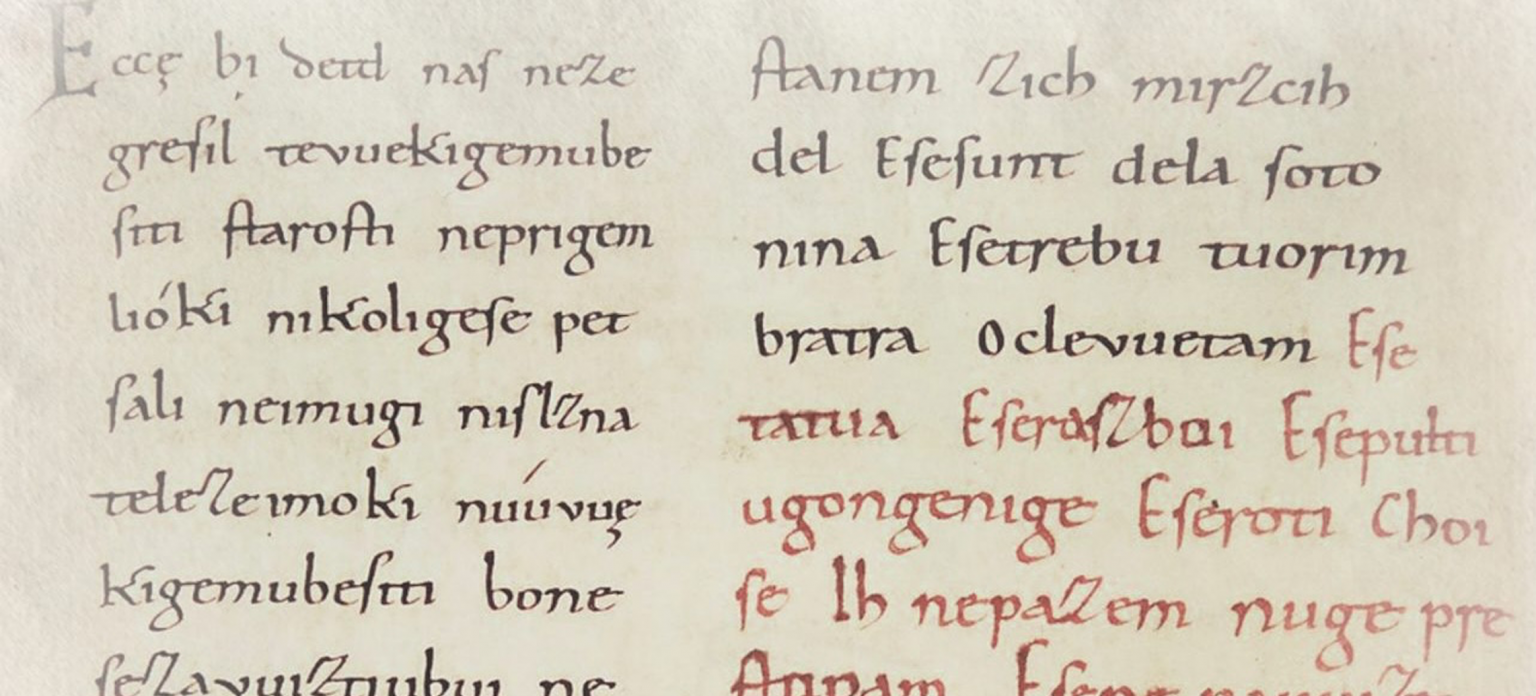 Eccę bi detd naſ neze
greſil tevuekigemube
ſiti ſtaroſti neprigem
lióki nikoligeſe pet
ſali neimugi niſlzna
teleze imoki nuúvuę
kigemubeſiti bone
ſezavuiztiubui ne
ſtanem zich mirzcih
del Eſeſunt dela ſoto
nina Eſetrebu tuorim
bratra Oclevuetam Eſe
tatua Eſeraſzboi Eſepulti
ugongenige Eſeroti Choi
ſe Ih nepazem nuge pre
ſtopam Eſene